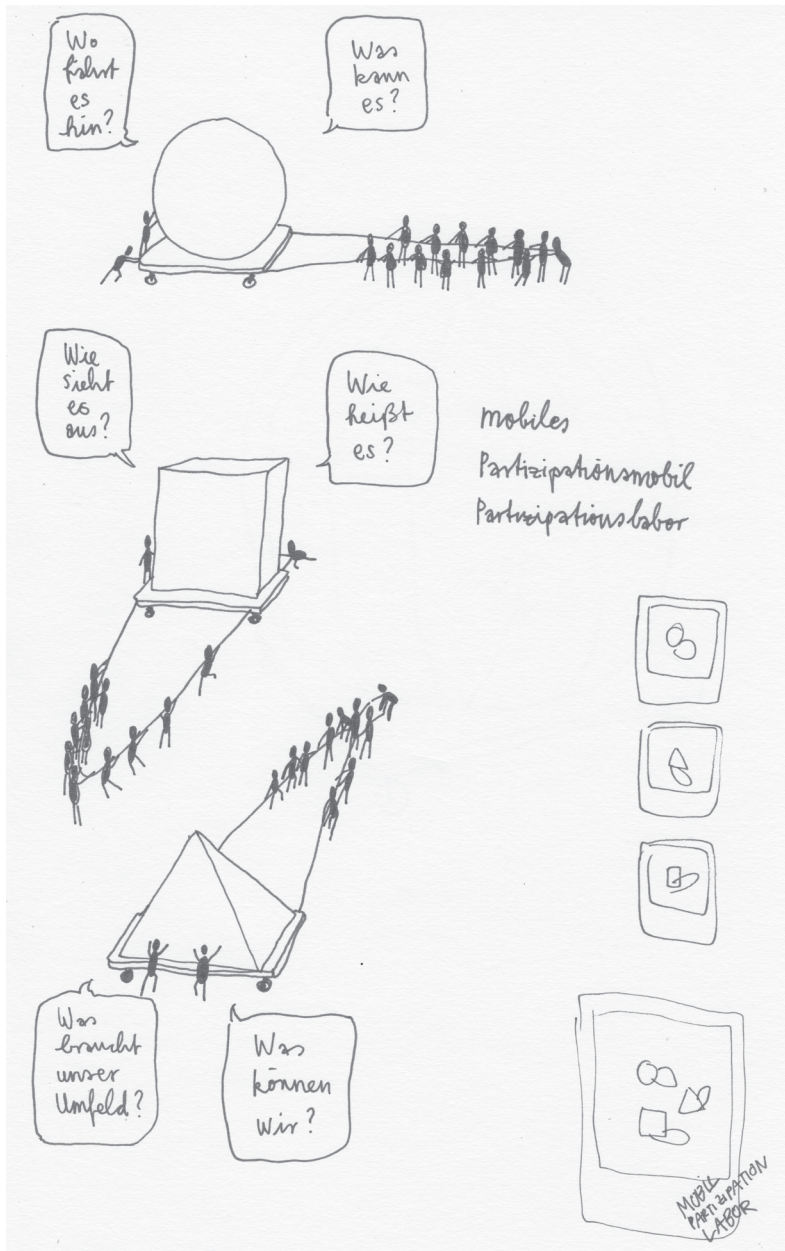 Wo
fährt
es
hin?
Was
kann
es?
Wie
sieht
es
aus?
Wie
heißt
es?
mobiles
Partizipationsmobil
Partizipationslabor
Was
braucht
unser
Umfeld?
Was
können
wir?
MOBIL
PARTIZIPATION
LABOR